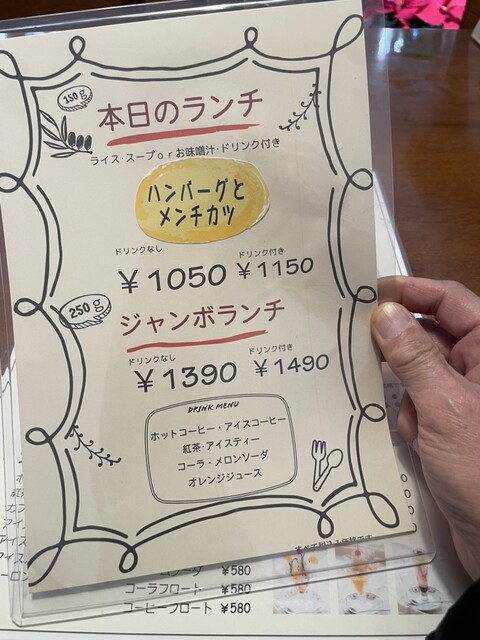 150g
本日のランチ
ライス・スープorお味噌汁・ドリンク付き
ハンバーグと
メンチカツ
ドリンクなし ドリンク付き
¥1050 ¥1150
250g
ジャンボランチ
ドリンクなし ドリンク付き
¥1390 ¥1490
DRINK MENU
ホットコーヒー・アイスコーヒー
紅茶・アイスティー
コーラ・メロンソーダ
オレンジジュース
¥580
コーラフロート ¥580
コーヒーフロート ¥580